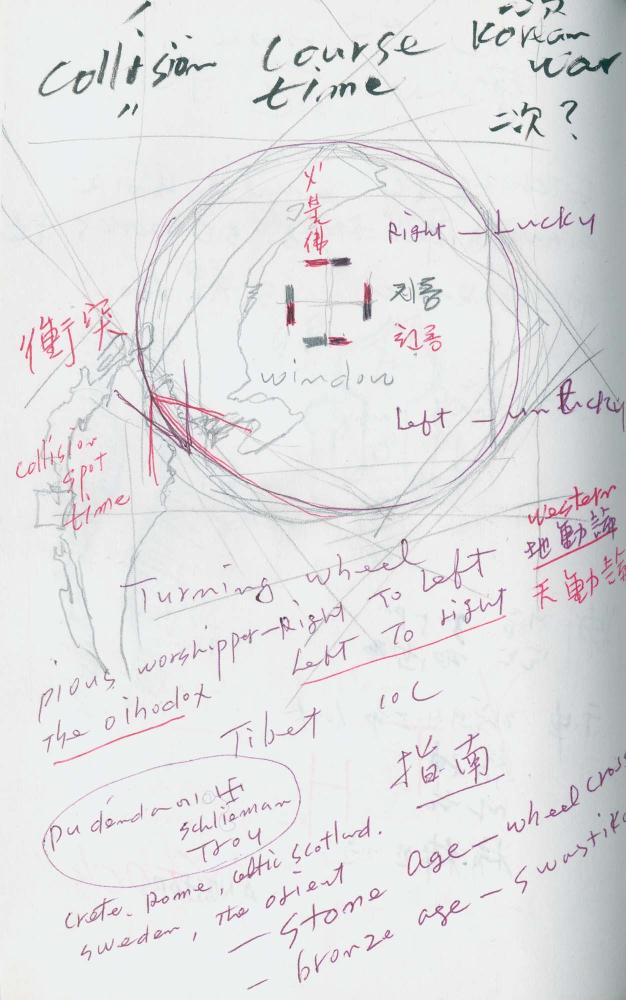 Collision Course
〃 time
二次
Korean
war
二次 ?
火
是
佛
Right — Lucky
지동
천동
window
Left — unlucky
衝突
collision
spot
time
western
地動論
天動論
Turning wheel
pious worshipper — Right To Left
Left To right
The oihodox
Tibet 10C
指南
pudenda 卐
schlieman
Troy
crete. Rome, celtic scotland.
sweden, The orient
— stone age — wheel cross
— bronze age — swastika